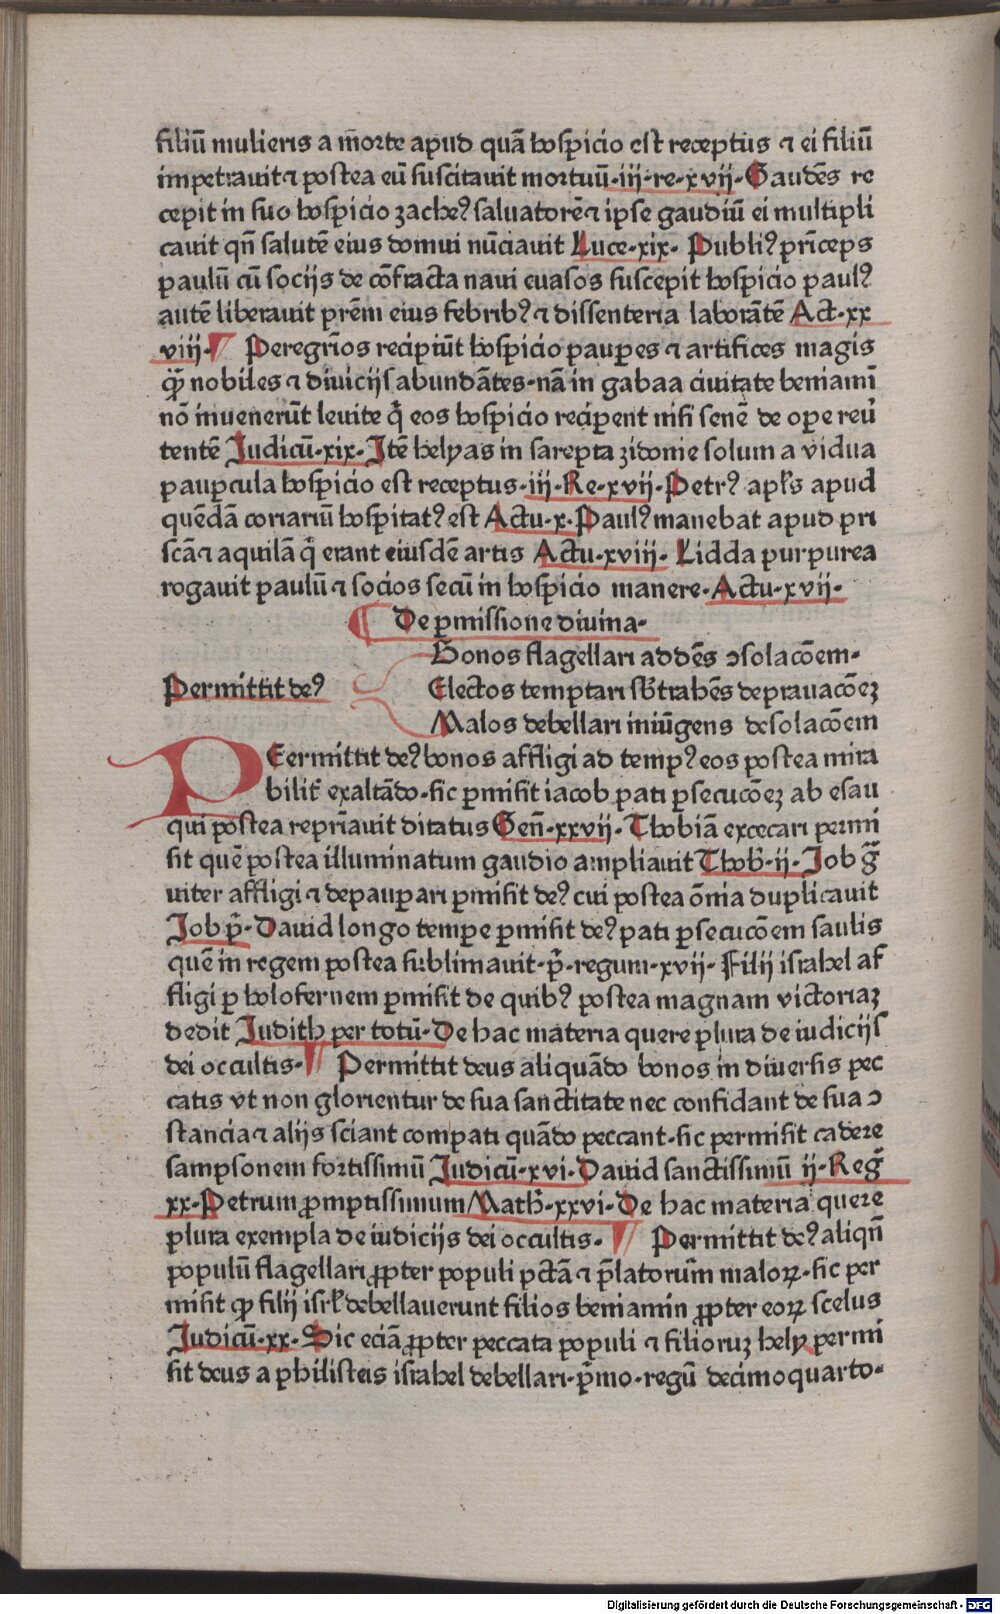 filiū mulieris a morte apud quā hospicio est receptus ⁊ ei filiū
impetrauit ⁊ postea eū suscitauit mortuū·iij·re·xvij·Gaudēs re
cepit in suo hospicio zacheꝰ saluatorē ⁊ ipse gaudiū ei multipli
cauit qn̄ salutē eius domui nūciauit Luce·xix· Publiꝰ prīceps
paulū cū socijs de cōfracta naui euasos suscepit hospicio paulꝰ
autē liberauit prēm eius febribꝰ ⁊ dissenteria laborātē Act·xx
viij·¶ Peregrīos recipiūt hospicio pauꝑes ⁊ artifices magis
qꝫ̄ nobiles ⁊ diuicijs abundātes·nā in gabaa ciuitate beniamī
nō inuenerūt leuite q̄ eos hospicio reciꝑent nisi senē de oꝑe reuͬ
tentē Iudicū·xix·Itē helyas in sarepta zidonie solum a vidua
pauꝑcula hospicio est receptus·iij·Re·xvij·Petrꝰ apl̄s apud
quēdā coriariū hospitatꝰ est Actu·x·Paulꝰ manebat apud pri
scā ⁊ aquilā q̄ erant eiusdē artis Actu·xviii· Lidda purpurea
rogauit paulū ⁊ socios secū in hospicio manere·Actu·xvij·
¶ De ꝑmissione diuina·
Bonos flagellari addēs ↄsolacōem·
Permittit deꝰ Electos temptari sb̄trahēs deprauacōeꝫ
Malos debellari iniūgens desolacōem
PEermittit deꝰ bonos affligi ad tempꝰ eos postea mira
bilit̄ exaltādo·sic ꝑmisit iacob pati ꝑsecucōeꝫ ab esau
qui postea repriāuit ditatus Gen̄·xxvij·Thobiā excecari permi
sit quē postea illuminatum gaudio ampliauit Thob̄·ij·Job ḡ
viter affligi ⁊ depauꝑari ꝑmisit deꝰ cui postea ōnia duplicauit
Job p̄·Dauid longo temꝑe ꝑmisit deꝰ pati ꝑsecucōem saulis
quē in regem postea sublimauit·p̄·regum·xvij· Filij israhel af
fligi ꝑ holofernem ꝑmisit de quibꝰ postea magnam victoriaꝫ
dedit Judith per totū·De hac materia quere plura de iudicijs
dei occultis·¶ Permittit deus aliquādo bonos in diuersis pec
catis vt non glorientur de sua sanctitate nec confidant de sua ↄ
stancia ⁊ alijs sciant compati quādo peccant·sic permisit cadere
sampsonem fortissimū Iudicū·xvi·Dauid sanctissimū ij·Reḡ
xx·Petrum promptissimum Math̄·xxvi·De hac materia quere
plura exempla de iudicijs dei occultis·¶ Permittit deꝰ aliqn̄
populū flagellari ꝓpter populi pctā ⁊ p̄latorum maloꝝ·sic per
misit qꝫ filij isrl̄ debellauerunt filios beniamin ꝓpter eoꝝ scelus
Iudicū·xx·Sic eciā ꝓpter peccata populi ⁊ filioruꝫ hely permi
sit deus a philisteis israhel debellari·p̄mo·regū decimoquarto·
Digitalisierung gefördert durch die Deutsche Forschungsgemeinschaft - DFG